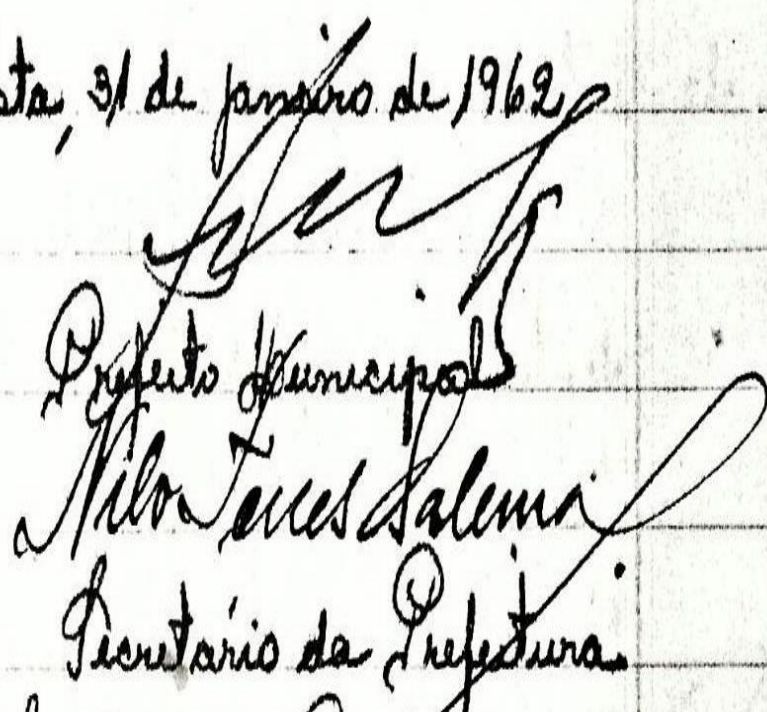 sta, 31 de janeiro de 1962
Prefeito Municipal
Nilo Salema
Secretário da Prefeitura.